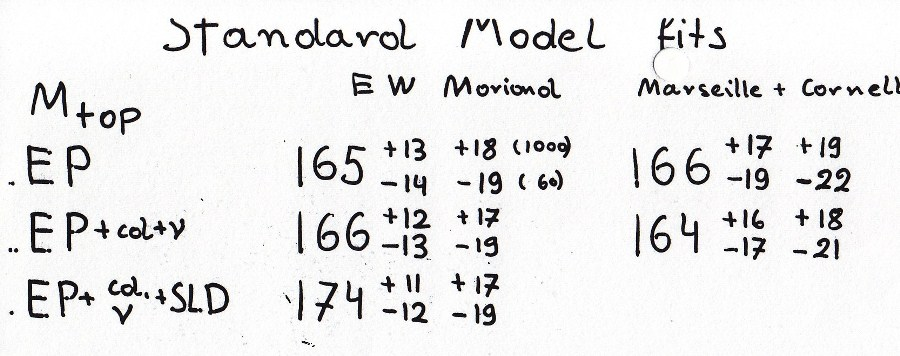 Standard Model fits
EW Moriond Marseille + Cornell
Mtop
.EP 165 +13 -14 +18 (1000) -19 (60) 166 +17 -19 +19 -22
..EP + col + ν 166 +12 -13 +17 -19 164 +16 -17 +18 -21
.EP + col. ν + SLD 174 +11 -12 +17 -19